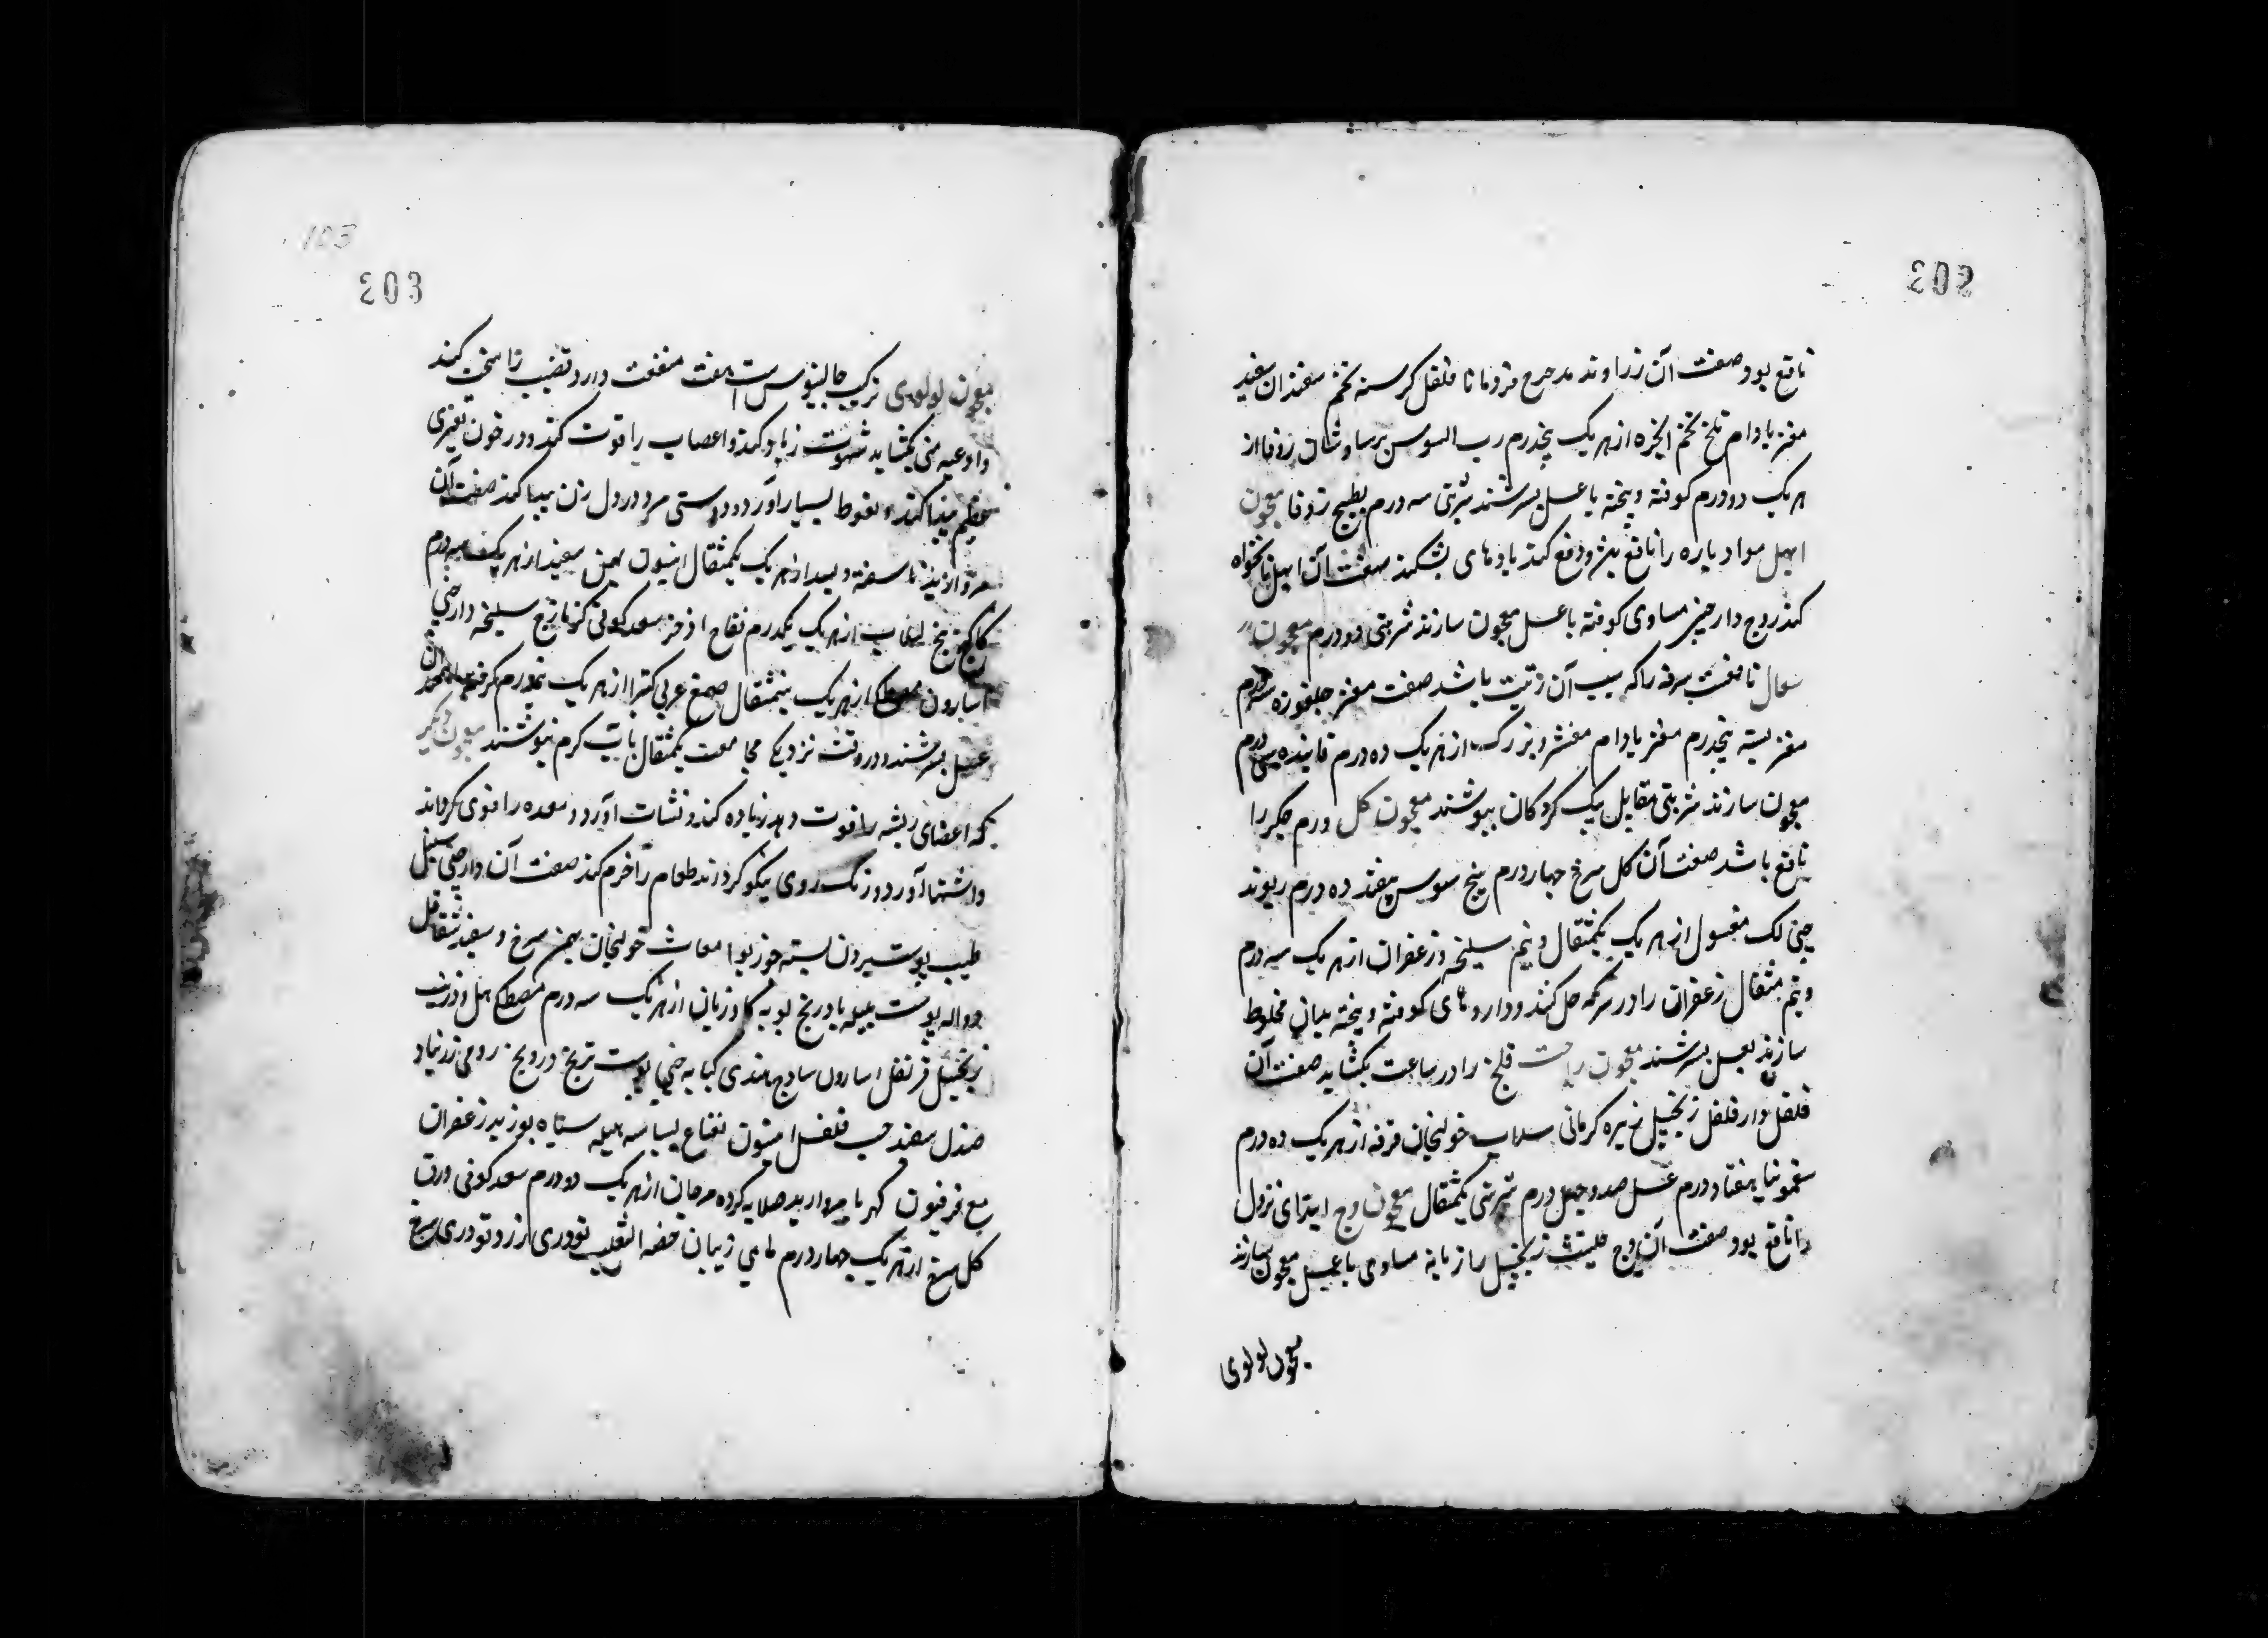 202
نافع بود صفت آن زراوند مدحرج قردمانا فلفل کرسنه تخم سفندان سفید
مغز بادام تلخ تخم انجره از هر یک پنجدرم رب السوس برساوشان زوفا از
هر یک دو درم کوفته و پخته با عسل بسرشند شربتی سه درم بطبیخ زوفا معجون
ابهل مواد باره را نافع بود و دفع کند بادهای بشکند صفت آن ابهل نانخواه
کندر وج دارچینی مساوی کوفته با عسل معجون سازند شربتی دو درم معجون
سعال نافعست سرفه را که سبب آن زتیت باشد صفت مغز جلغوزه سه درم
مغز پسته پنجدرم مغز بادام مقشر و بزرک از هر یک ده درم فانیذ سی درم
معجون سازند شربتی مقابل یک کردکان بنوشند معجون کل ورم جکر را
نافع باشد صفت آن کل سرخ چهار درم بیخ سوس سفند ده درم ریوند
چینی لک مغسول از هر یک یکمثقال و نیم سلیخه و زعفران از هر یک سه درم
و نیم مثقال زعفران را در سرکه حل کنند و داروهای کوفته و پخته بدان مخلوط
سازند بعسل بسرشند معجون راحت قلنج را در ساعت بکشاید صفت آن
فلفل دار فلفل زنجبیل زیره کرمانی سداب خولنجان قرفه از هر یک ده درم
سقمونیا هفتاد درم عسل صد و چهل درم شربتی یکمثقال معجون وج ابتدای نزول
را نافع بود صفت آن وج حلتیت زنجبیل رازیانه مساوی با عسل معجون سازند
معجون لولوی
103
203
معجون لولوی ترکیب جالینوس است هفت منفعت دارد قضیب را سخت کند
و اوعیه منی بکشاید شهوت زیاد کند و اعصاب را قوت کند و در خون تغیری
عظیم پیدا کند و نعوظ بسیار آورد و دوستی مرد در دل زن پیدا کند صفت آن
مروارید ناسفته و بسد از هر یک یکمثقال انیسون بهمن سفید از هر یک سه درم
کاکنج بیخ از هر یک یکدرم فقاح اذخر سعد کوفی سلیخه دارچینی
اسارون مصطکی از هر یک نیمثقال صمغ عربی کتیرا از هر یک نیمدرم
عسل بسرشند و در وقت نزدیکی مجامعت یکمثقال با آب کرم بنوشند معجون دیکر
که اعضای رئیسه را قوت دهد زیاده کند و نشاط آورد و معده را قوی کرداند
و اشتها آورد و رنک روی نیکو کرداند طعام را کند صفت آن دارچینی سنبل
طیب پوست بیرون پسته جوز بوا خولنجان بهمن سرخ و سفید شقاقل
دواله پوست هلیله بادرنج بویه کاوزبان از هر یک سه درم مصطکی هل و زرنب
زنجبیل قرنفل اسارون ساذج هندی کبابه چینی پوست ترنج درونج رومی زرنباد
صندل سفید حب فلفل افتیمون نعناع بسباسه هلیله سیاه بوزیدان زعفران
مع فرفیون کهربا مروارید صلایه کرده مرجان از هر یک دو درم سعد کوفی ورق
کل سرخ از هر یک چهار درم خصیه الثعلب تودری زرد و تودری سرخ